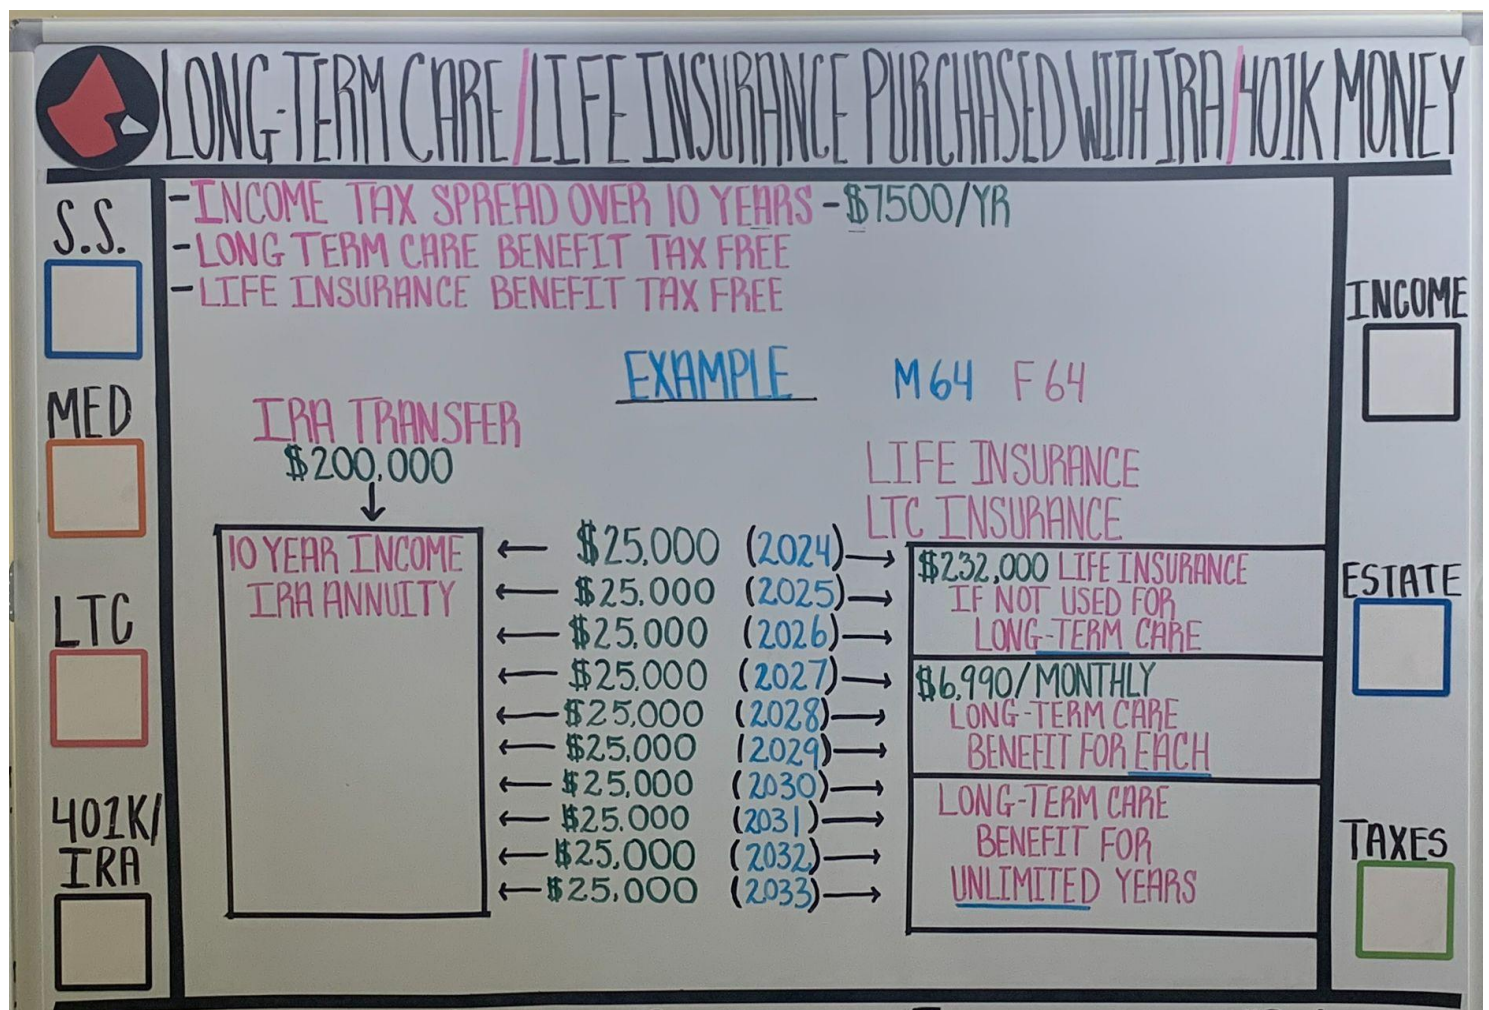 LONG-TERM CARE/LIFE INSURANCE PURCHASED WITH IRA/401K MONEY
S.S.
MED
LTC
401K/
IRA
- INCOME TAX SPREAD OVER 10 YEARS - $7500/YR
- LONG TERM CARE BENEFIT TAX FREE
- LIFE INSURANCE BENEFIT TAX FREE
EXAMPLE M64 F64
IRA TRANSFER
$200,000
↓
10 YEAR INCOME
IRA ANNUITY
← $25,000 (2024) →
← $25,000 (2025) →
← $25,000 (2026) →
← $25,000 (2027) →
← $25,000 (2028) →
← $25,000 (2029) →
← $25,000 (2030) →
← $25,000 (2031) →
← $25,000 (2032) →
← $25,000 (2033) →
LIFE INSURANCE
LTC INSURANCE
$232,000 LIFE INSURANCE
IF NOT USED FOR
LONG-TERM CARE
$6,990/MONTHLY
LONG-TERM CARE
BENEFIT FOR EACH
LONG-TERM CARE
BENEFIT FOR
UNLIMITED YEARS
INCOME
ESTATE
TAXES